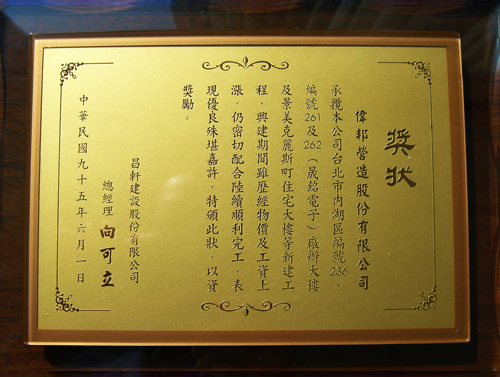 獎狀
偉邦營造股份有限公司
承攬本公司台北市內湖區編號236、
編號261及262（晟銘電子）廠辦大樓
及景美克麗斯町住宅大樓等新建工
程，興建期間雖歷經物價及工資上
漲，仍密切配合陸續順利完工，表
現優良殊堪嘉許，特頒此狀，以資
獎勵。
昌軒建設股份有限公司
總經理 向可立
中華民國九十五年六月一日